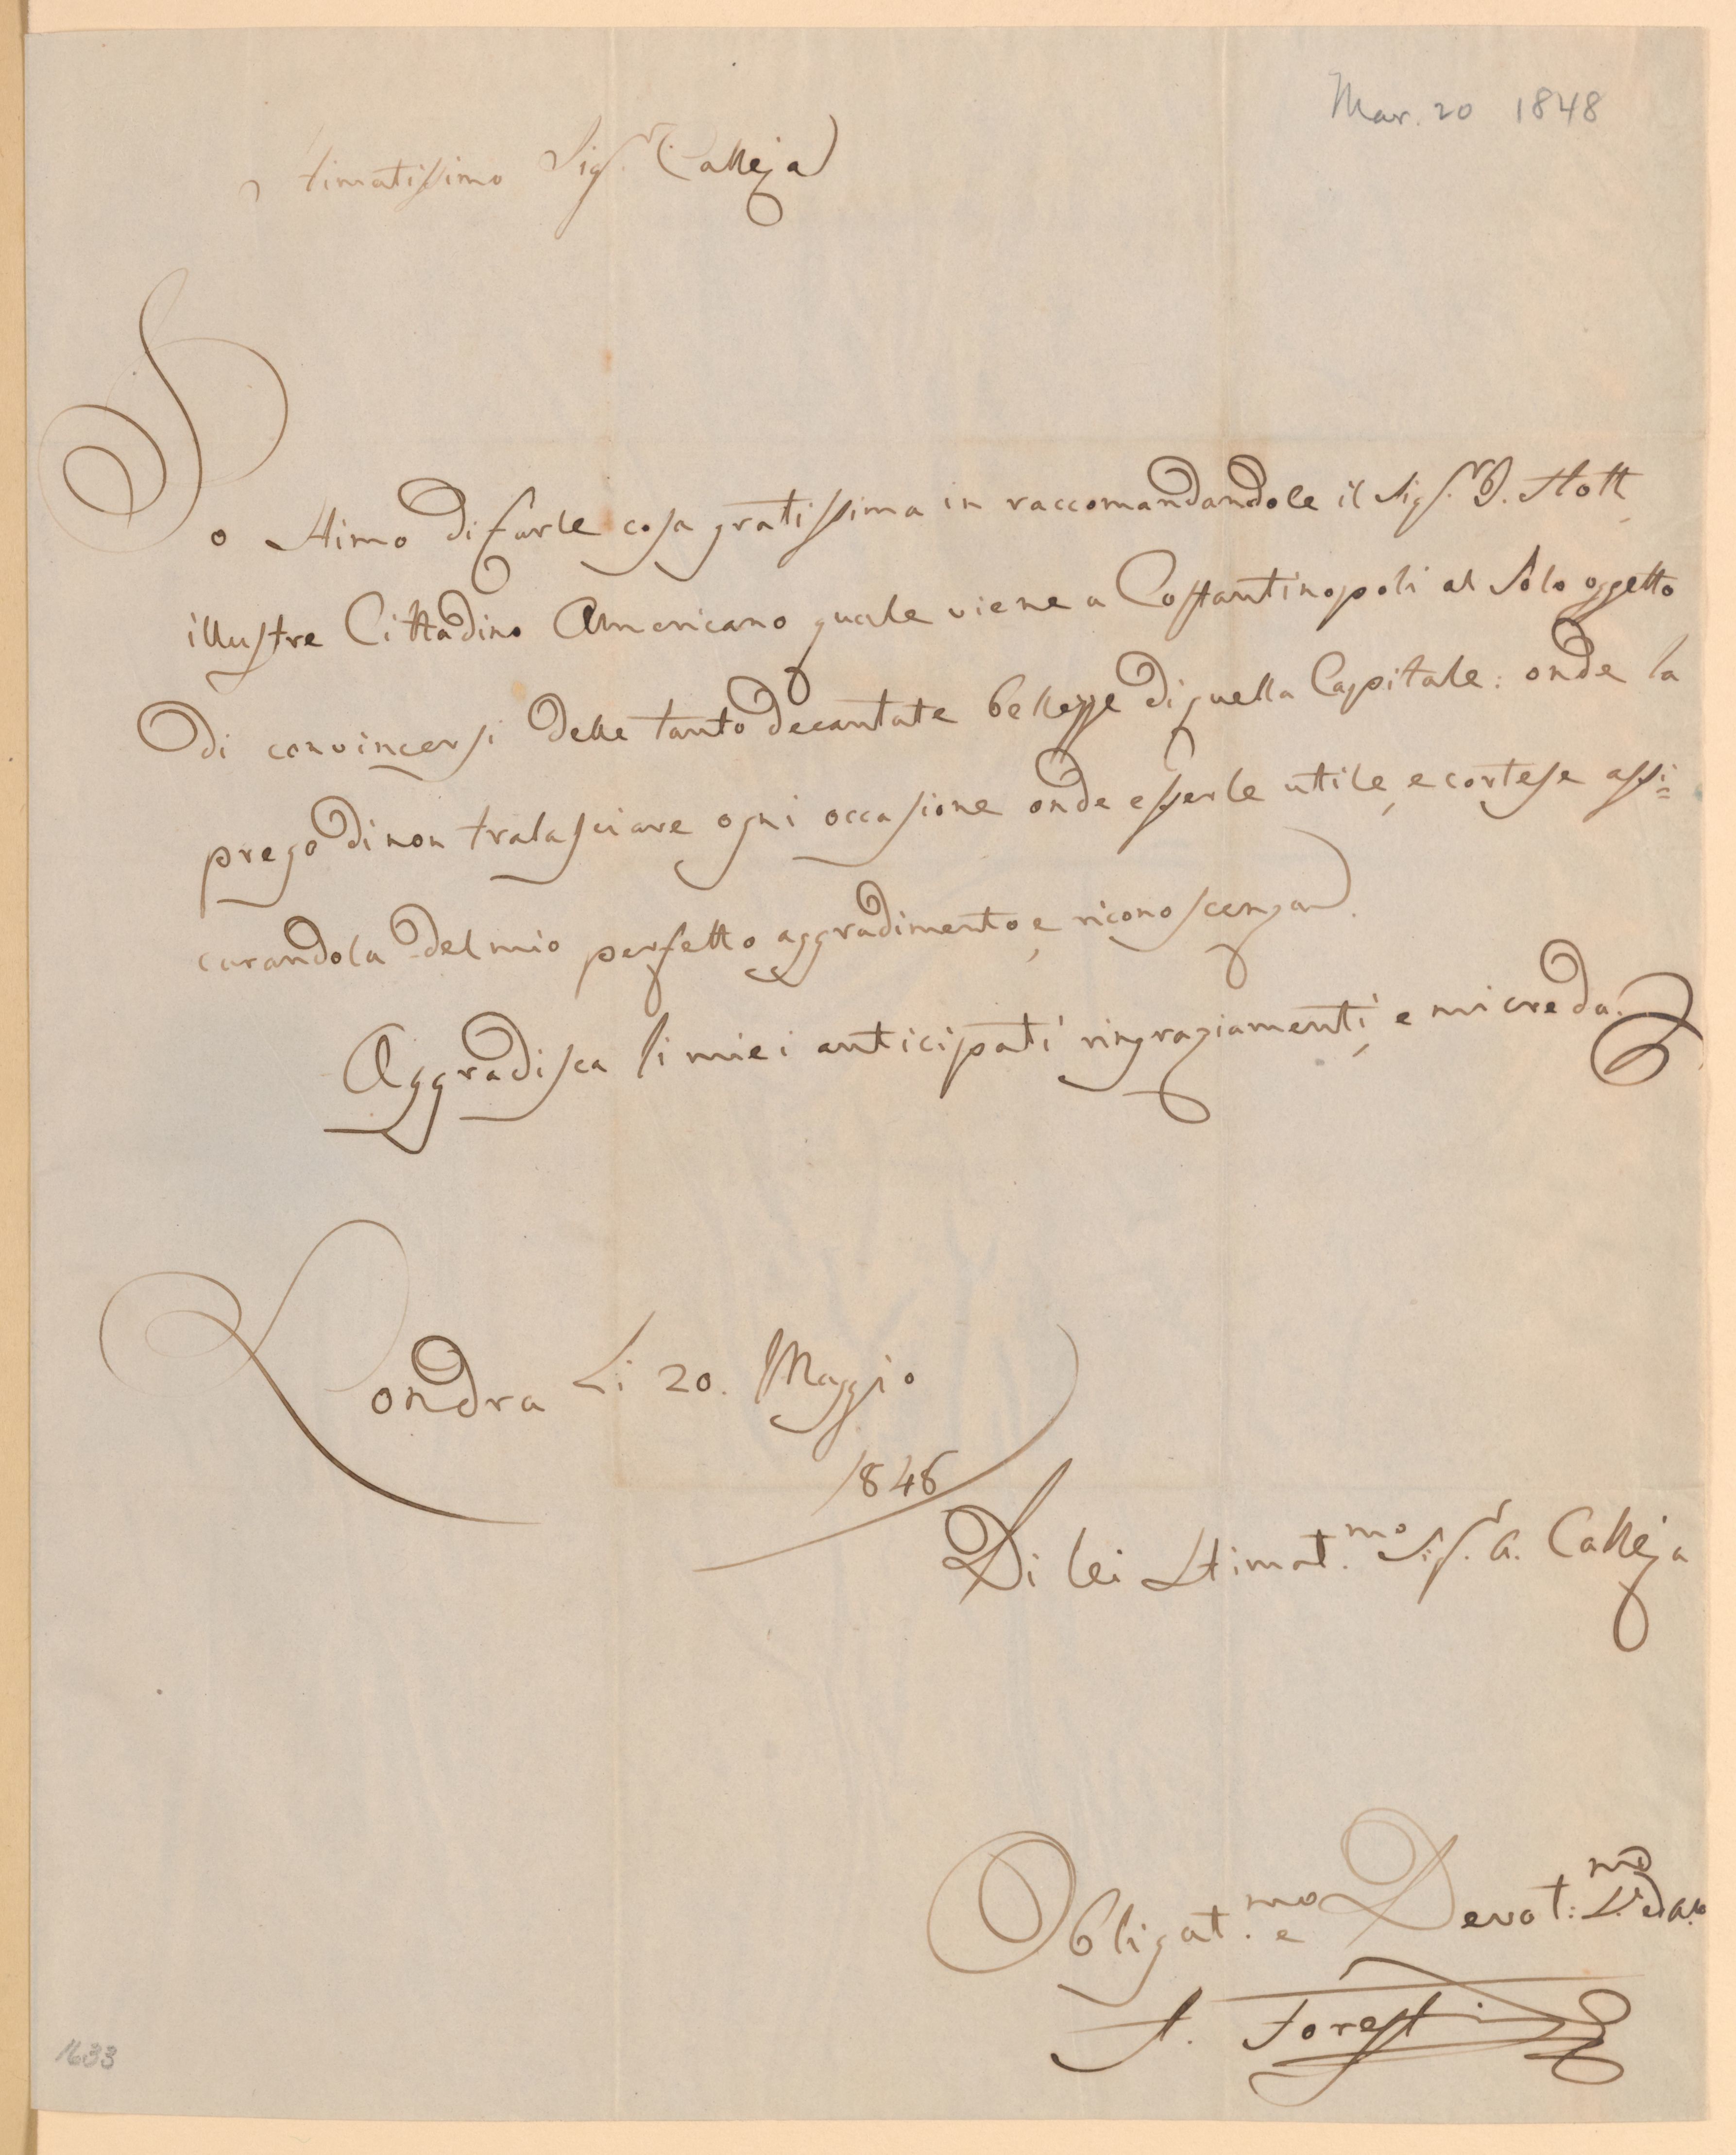 Mar. 20 1848
Stimatissimo Sig.r Calleja
Io Stimo di farle cosa gratissima in raccomandandole il Sig.r J. Mott
illustre Cittadino Americano quale viene a Costantinopoli al Solo oggetto
di convincersi delle tanto decantate bellezze di quella Capitale: onde la
prego di non tralasciare ogni occasione onde esserle utile, e cortese assi=
curandola del mio perfetto aggradimento, e riconoscenza.
Aggradisca li miei anticipati ringraziamenti, e mi creda.
Londra Li 20. Maggio
1848
Di lei Stimat.mo Sig.r A. Calleja
Obligat.mo e Devot:mo
Foresti
1633